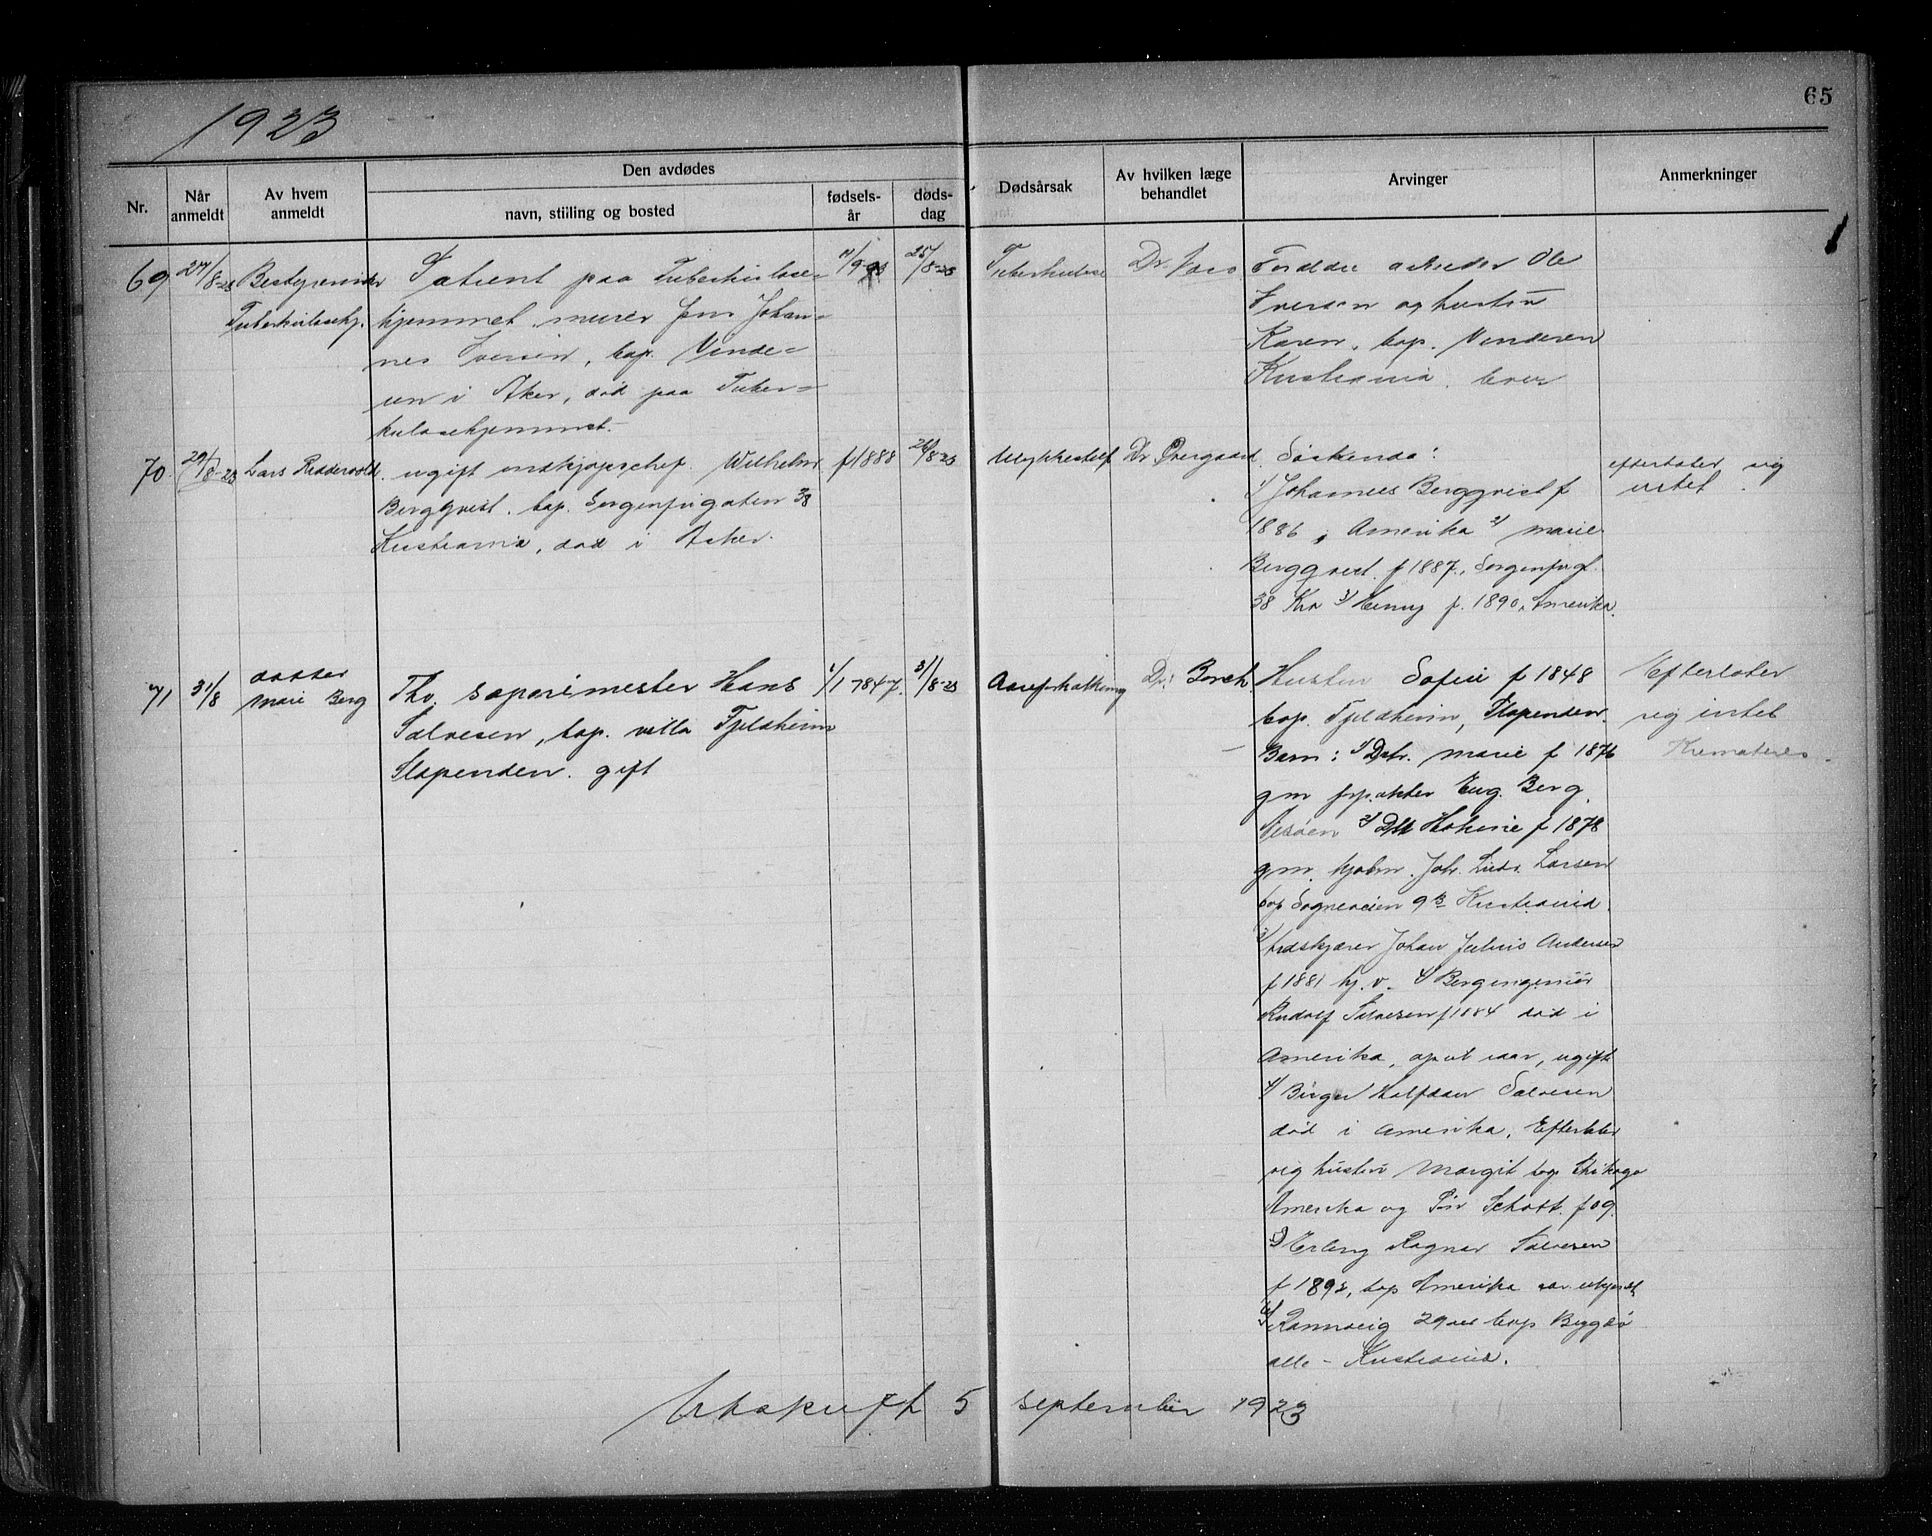 1923
65
Den avdødes
Nr.
Når anmeldt
Av hvem anmeldt
navn, stiiling og bosted
fødsels-år
døds-dag
Dødsårsak
Av hvilken læge behandlet
Arvinger
Anmerkninger
69
27/8-23
Bestyrerinden
Tuberkulosehj.
Patient paa Tuberkulose=
hjemmet murer Jens Johan=
nes Iversen, bop. Vinde=
ren i Aker, død paa Tuber=
kulosehjemmet.
25/8-23
Tuberkulose
Dr.
Forældre arbeider Ole
Iversen og hustru
Karen, bop. Vinderen
Kristiania.
70.
29/8-23
Lars Riddervold.
ugift indkjøpschef. Wilhelm
Bergqvist. bop. Sorgenfrigaten 38
Kristiania, død i Asker.
f 1888
26/8-23
Ulykkestilf
Dr Overgaard.
Søskende:
1/ Johannes Bergqvist f
1886, Amerika 2/ Marie
Bergqvist. f 1887, Sorgenfrigt.
38 Kra 3/ Henny f. 1890. Amerika.
efterlater sig
intet.
71
31/8
datter
Marie Berg
Thv. saperimester Hans
Salvesen, bop. villa Fjeldheim
Slependen. gift
1/1 1847.
31/8-23
Aareforkalkning
Dr. Borch
Hustru Sofie f 1848
bop. Fjeldheim, Slependen.
Barn: 1/ Datr. Marie f 1876
gm forpakter Eug. Berg,
Nesøen 2/ Dtr Hokine f 1878
gm. kjøbm. Joh. Ludv. Larsen
bop Sogneveien 9B Kristiania.
3/ Træskjærer Johan Julius Andersen
f 1881 hj. v. 4/ Bergingeniør
Rudolf Salvesen f 1884 død i
Amerika, ugift
4/ Birger Halfdan Salvesen
død i Amerika. Efterlater
sig hustru Margit bop Chikago
Amerika og søn Schott f 09.
5/ Erling Ragnar Salvesen
f 1892, bop Amerika adr. ukjendt
6/ Rannveig 29 aar bop Bygdø
alle - Kristiania.
Efterlater
sig intet
Kremateres.
Utskrift 5 september 1923